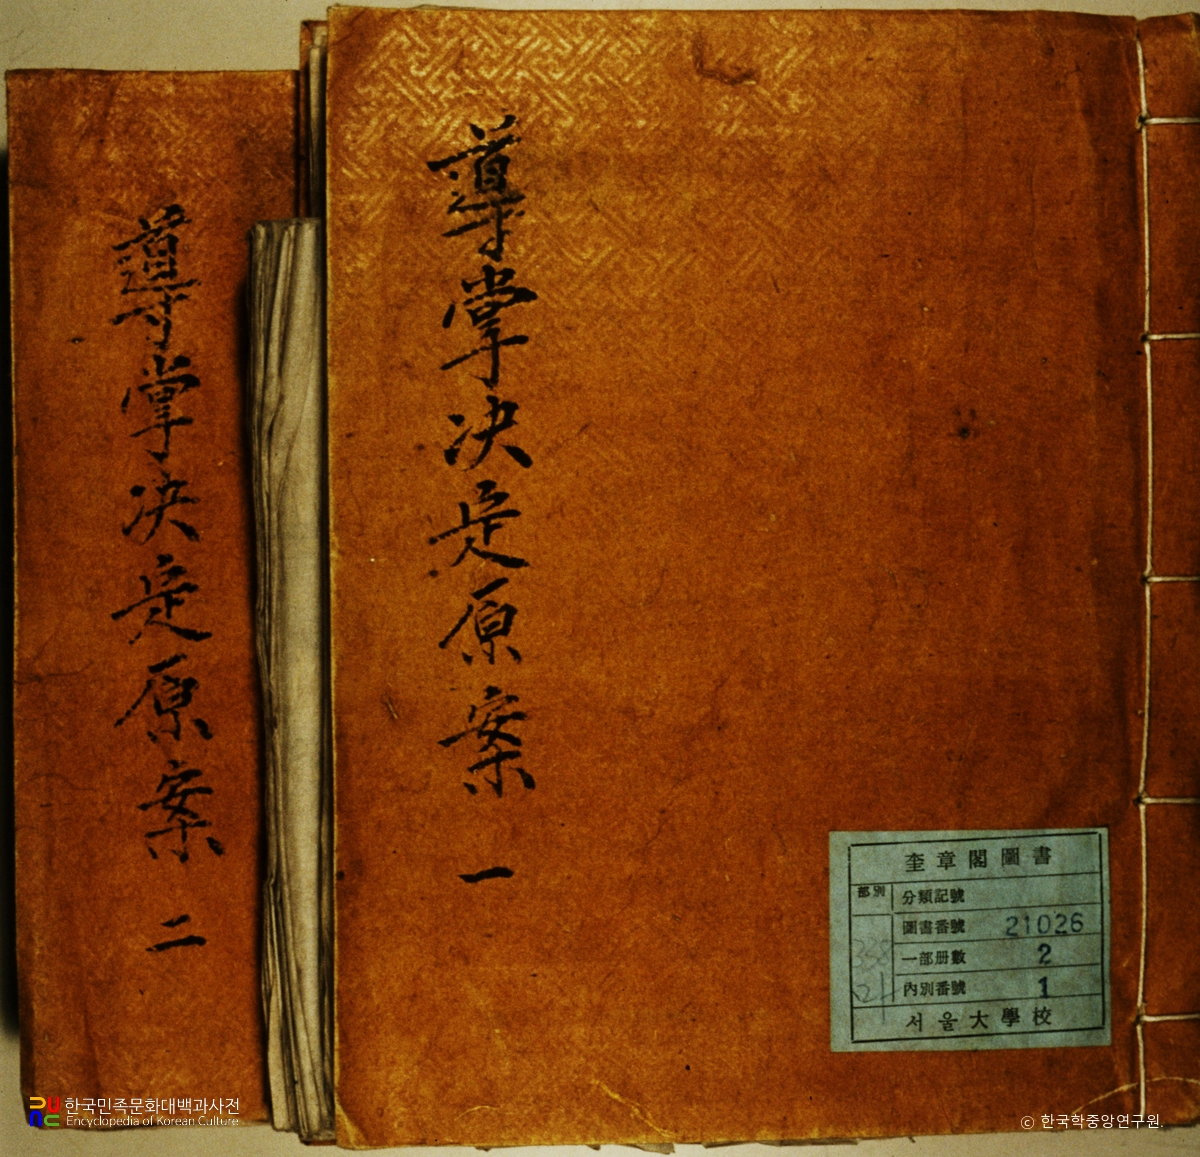 導掌決定原案 一
導掌決定原案 二
奎章閣圖書
部別
分類記號
圖書番號 21026
一部册數 2
內別番號 1
서울大學校
한국민족문화대백과사전
Encyclopedia of Korean Culture
ⓒ 한국학중앙연구원.